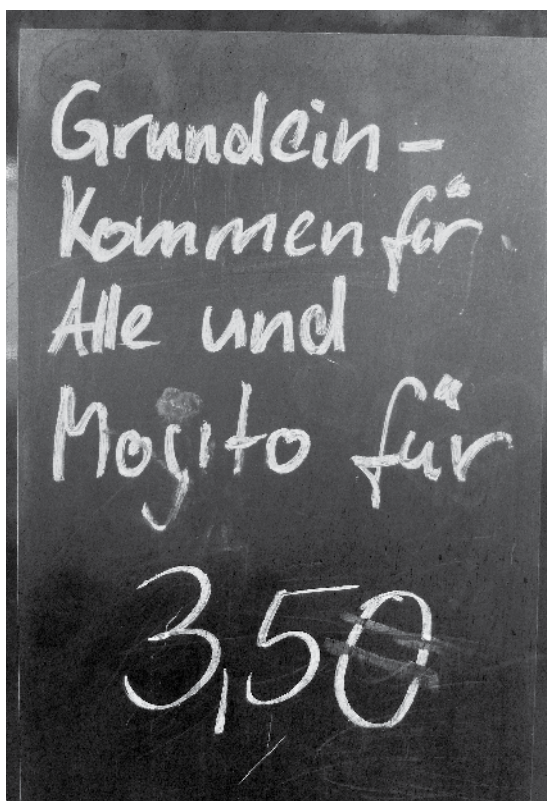 Grundein-
Kommen für
Alle und
Mojito für
3,50